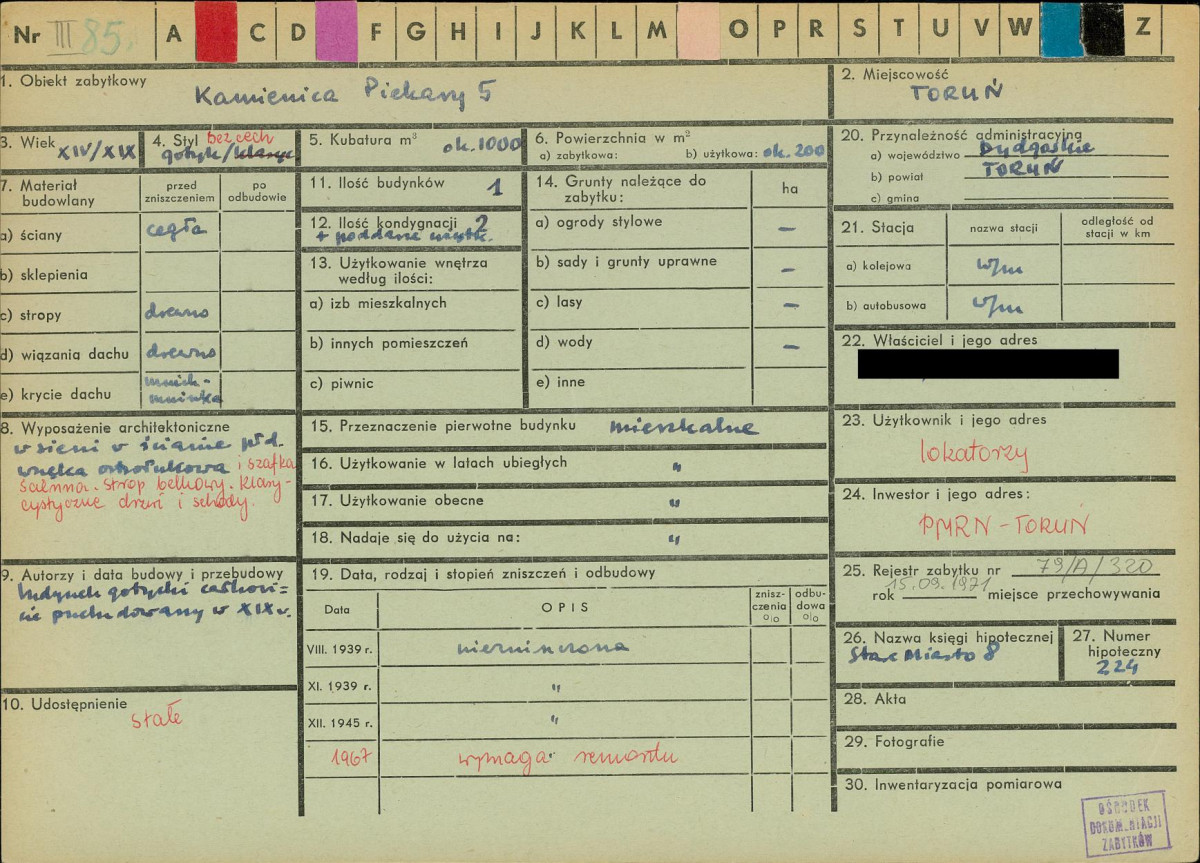 Nr III 85. A C D F G H I J K L M O P R S T U V W Z
1. Obiekt zabytkowy
Kamienica Piekary 5
2. Miejscowość
TORUŃ
3. Wiek
XIV/XIX
4. Styl bez cech
gotyk/klasyc
5. Kubatura m³
ok. 1000
6. Powierzchnia w m²
a) zabytkowa: b) użytkowa: ok. 200
20. Przynależność administracyjna
a) województwo Bydgoskie
b) powiat TORUŃ
c) gmina
7. Materiał budowlany
przed zniszczeniem
po odbudowie
a) ściany cegła
b) sklepienia
c) stropy drewno
d) wiązania dachu drewno
e) krycie dachu mnich-
mniszka
11. Ilość budynków 1
12. Ilość kondygnacji 2
+ poddasze użytk.
13. Użytkowanie wnętrza
według ilości:
a) izb mieszkalnych
b) innych pomieszczeń
c) piwnic
14. Grunty należące do
zabytku:
ha
a) ogrody stylowe –
b) sady i grunty uprawne –
c) lasy –
d) wody –
e) inne
21. Stacja
nazwa stacji
odległość od
stacji w km
a) kolejowa w/m
b) autobusowa w/m
22. Właściciel i jego adres
8. Wyposażenie architektoniczne
w sieni w ścianie płd.
wnęka ostrołukowa i szafka
ścienna. strop belkowy. klasy-
cystyczne drzwi i schody.
15. Przeznaczenie pierwotne budynku mieszkalne
16. Użytkowanie w latach ubiegłych "
17. Użytkowanie obecne "
18. Nadaje się do użycia na: "
23. Użytkownik i jego adres
lokatorzy
24. Inwestor i jego adres:
PMRN-TORUŃ
9. Autorzy i data budowy i przebudowy
budynek gotycki całkowi-
cie przebudowany w XIX w.
19. Data, rodzaj i stopień zniszczeń i odbudowy
Data
OPIS
znisz-
czenia
o/o
odbu-
dowa
o/o
VIII. 1939 r. niezniszczona
XI. 1939 r. "
XII. 1945 r. "
1967 wymaga remontu
25. Rejestr zabytku nr 79/A/320
rok 15.09.1971 miejsce przechowywania
26. Nazwa księgi hipotecznej
Stare Miasto 8
27. Numer
hipoteczny
224
10. Udostępnienie
stałe
28. Akta
29. Fotografie
30. Inwentaryzacja pomiarowa
OŚRODEK
DOKUMENTACJI
ZABYTKÓW